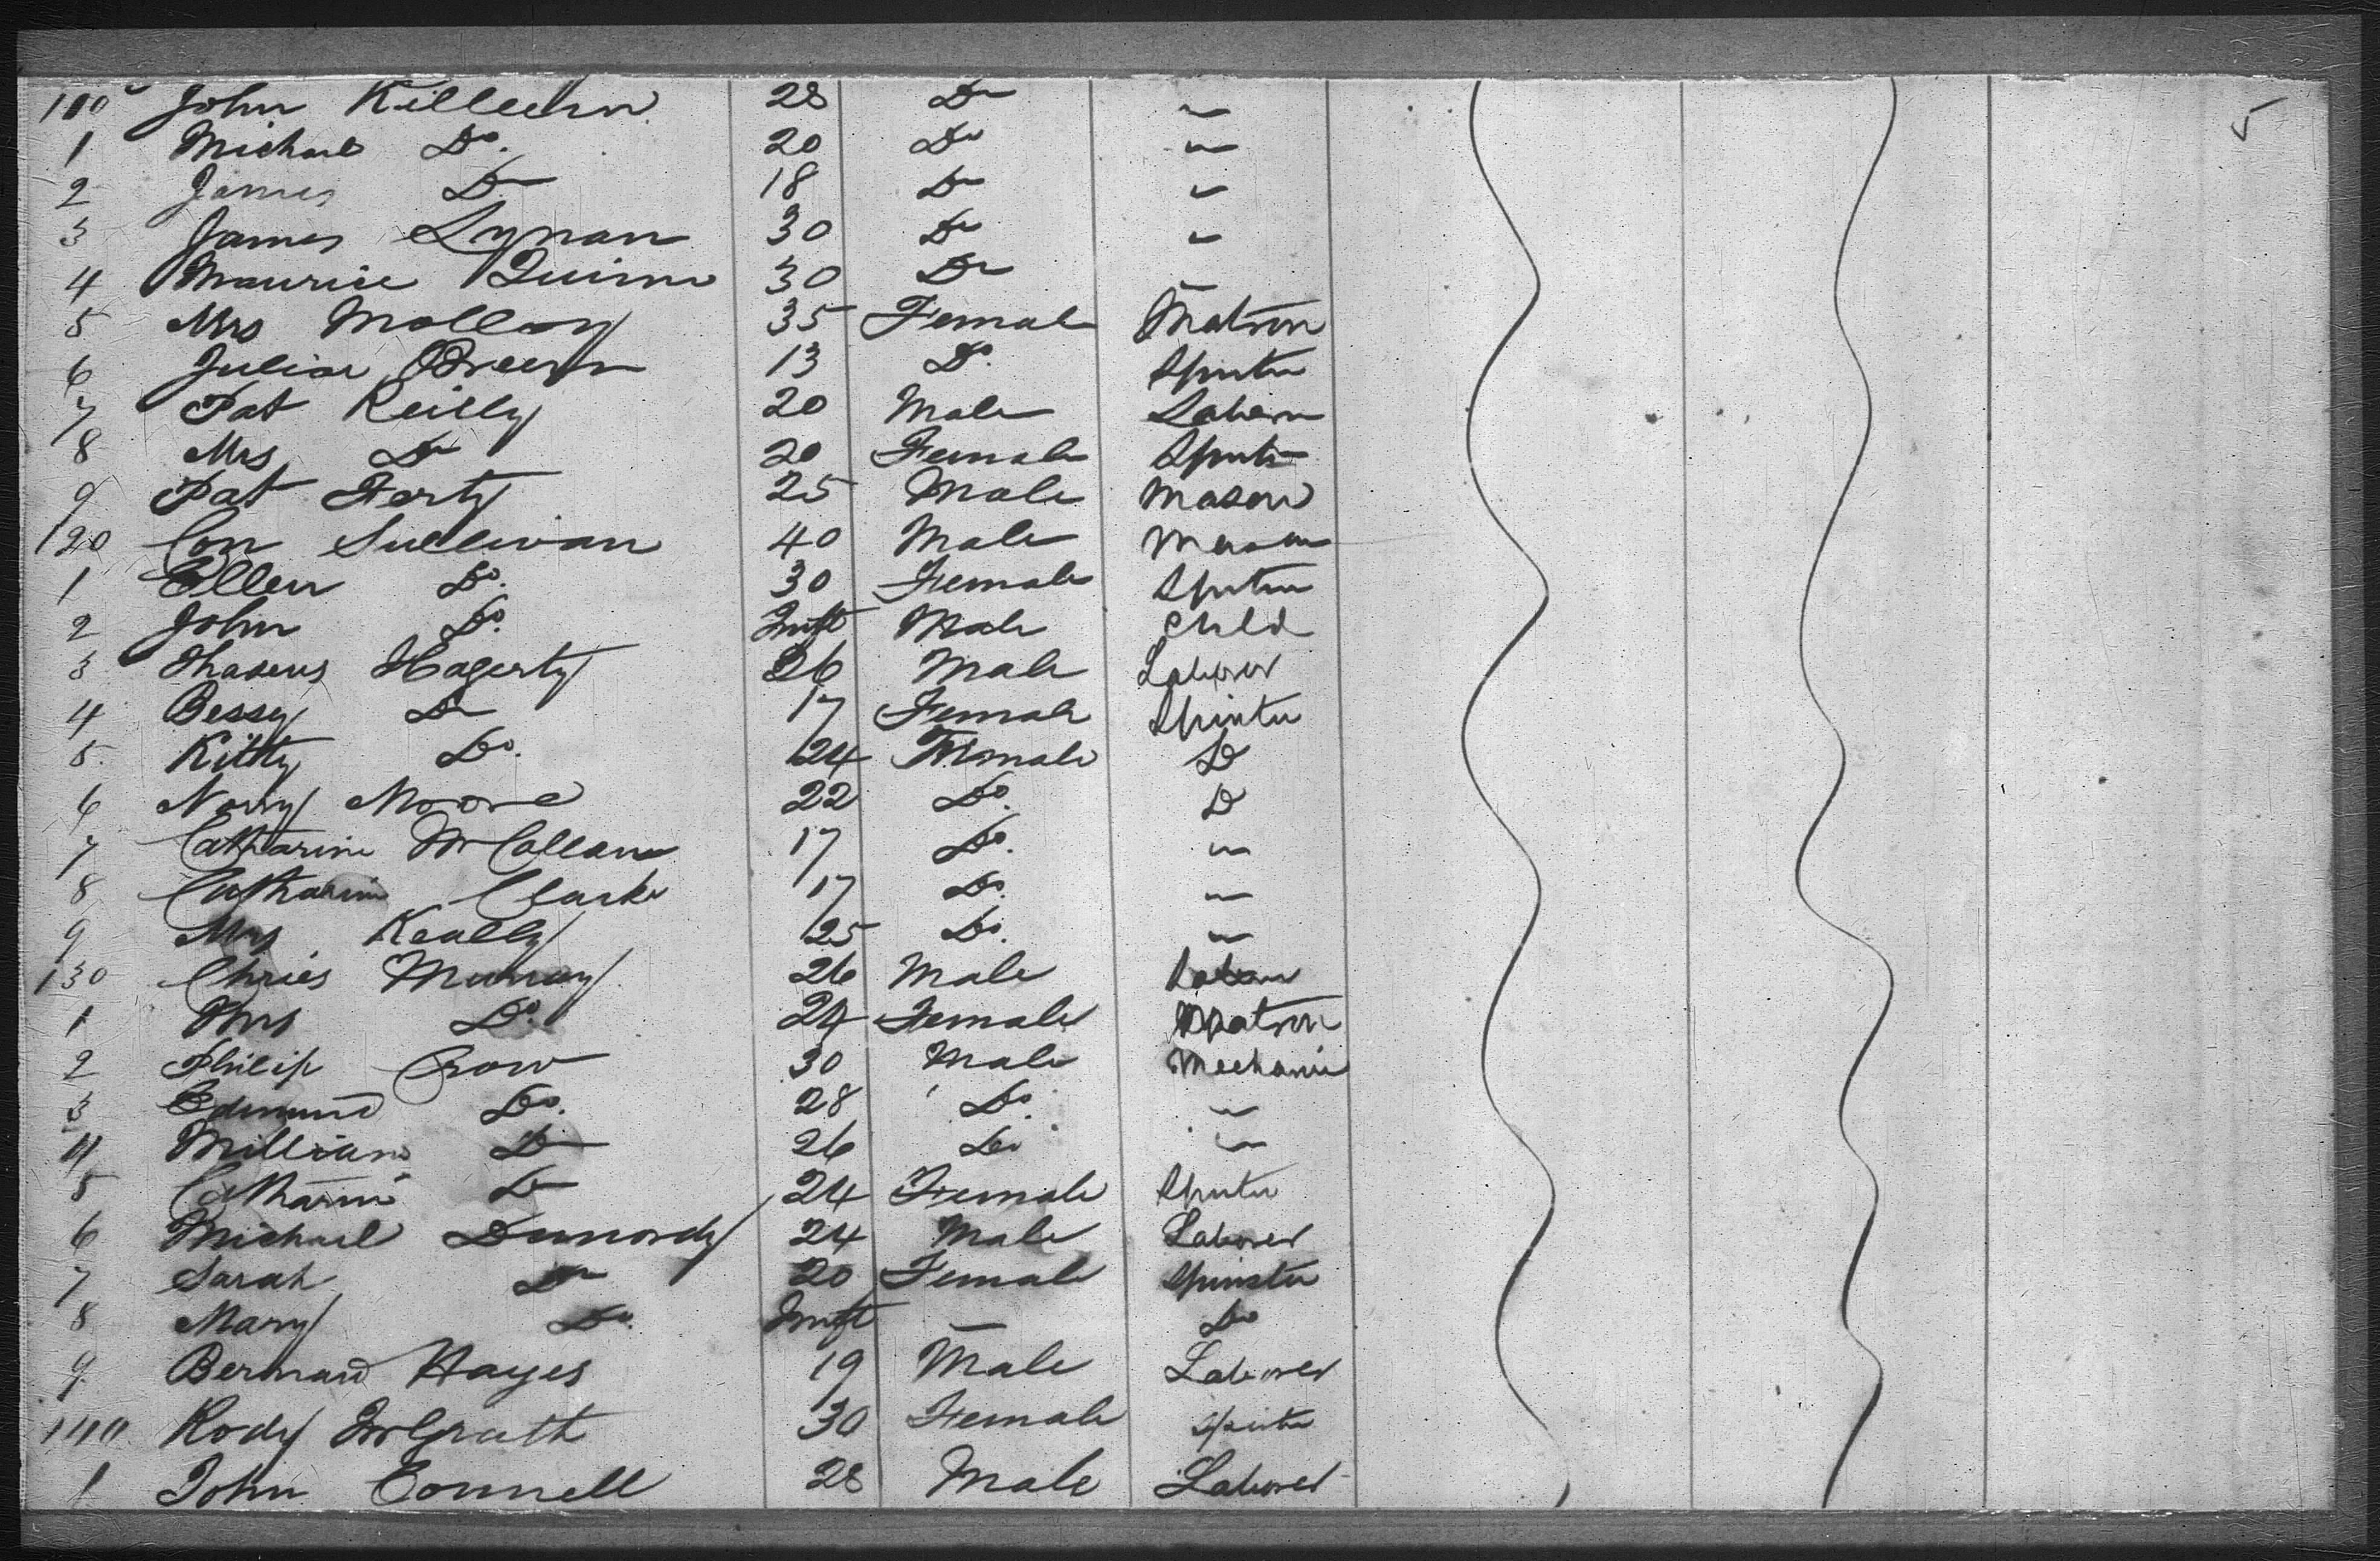 110 John Killeen 28 Do "
1 Michael Do. 20 Do "
2 James Do 18 Do "
3 James Lynan 30 Do "
4 Maurice Quinn 30 Do "
5 Mrs Molloy 35 Female Matron
6 Julia Breen 13 Do. Spinster
7 Pat Reilly 20 Male Laborer
8 Mrs Do 20 Female Spinster
9 Pat Ferty 25 Male Mason
120 Con Sullivan 40 Male Mason
1 Ellen Do. 30 Female Spinster
2 John Do. Inft Male Child
3 Thadeus Hagerty 26 Male Laborer
4 Bessy Do 17 Female Spinster
5 Kitty Do. 24 Female Do
6 Norry Moore 22 Do. Do
7 Catharine McCallan 17 Do. "
8 Catharine Clarke 17 Do. "
9 Mrs Keally 25 Do. "
130 Chries Murray 26 Male Laborer
1 Mrs Do. 24 Female Matron
2 Philip Crow 30 Male Mechanic
3 Edmund Do. 28 Do. "
4 William Do 26 Do "
5 Catharine Do 24 Female Spinster
6 Michael Dunordy 24 Male Laborer
7 Sarah Do 20 Female Spinster
8 Mary Do. Inft " Do
9 Bernard Hayes 19 Male Laborer
140 Rody McGrath 30 Female Spinster
1 John Connell 28 Male Laborer
5